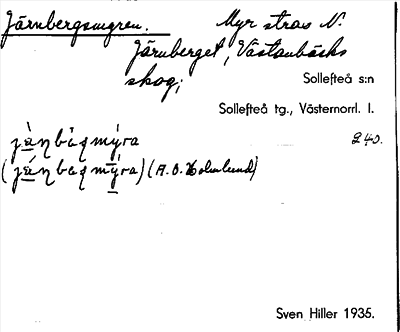 Järnbergsmyren. Myr strax N.
Järnberget, Västanbäcks
skog;
Sollefteå s:n
Sollefteå tg., Västernorrl. l.
jà̤ŋbăqmý̤ra 240.
(já̤ŋbaqmý̤ra) (A.O. Holmlund)
Sven Hiller 1935.